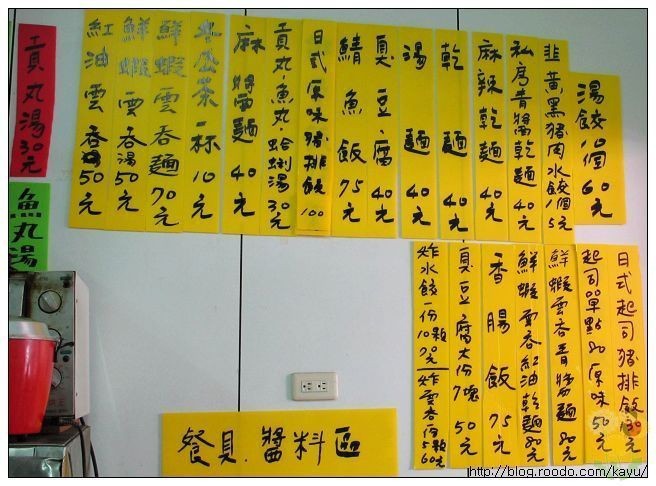 湯餃10個60元
韭黃黑豬肉水餃1個5元
私房青醬乾麵40元
麻辣乾麵40元
乾麵40元
湯麵40元
臭豆腐40元
鯖魚飯75元
日式原味豬排飯100
貢丸.魚丸.蛤蜊湯30元
麻醬麵40元
冬瓜茶一杯10元
鮮蝦雲吞麵70元
鮮蝦雲吞湯50元
紅油雲吞50元
貢丸湯30元
魚丸湯
日式起司豬排飯130元
起司單點80原味50元
鮮蝦雲吞青醬麵80元
鮮蝦雲吞紅油乾麵80元
香腸飯75元
臭豆腐大份7塊50元
炸水餃一份10顆70元/炸雲吞1份5顆60元
餐具.醬料區
http://blog.roodo.com/kayu/